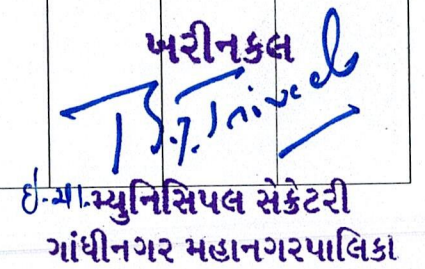 ખરીનકલ
B.J.Trivedi
ઇ-ચા.મ્યુનિસિપલ સેક્રેટરી
ગાંધીનગર મહાનગરપાલિકા